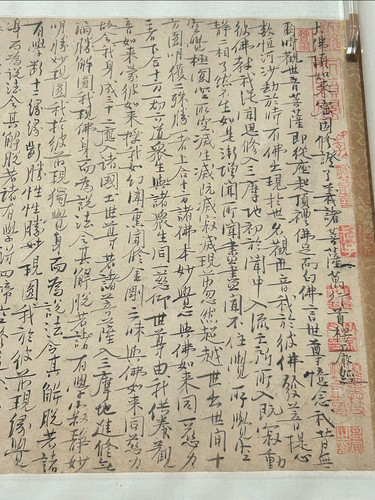 大佛頂如來密因修證了義諸菩薩萬行首楞嚴經
爾時觀世音菩薩即從座起頂禮佛足而白佛言世尊憶念我昔無
數恒河沙劫於時有佛出現於世名觀世音我於彼佛發菩提心
彼佛教我從聞思修入三摩地初於聞中入流亡所所入既寂動
靜二相了然不生如是漸增聞所聞盡盡聞不住覺所覺空
空覺極圓空所空滅生滅既滅寂滅現前忽然超越世出世間十
方圓明獲二殊勝一者上合十方諸佛本妙覺心與佛如來同一慈力
二者下合十方一切六道眾生與諸眾生同一悲仰世尊由我供養觀
音如來蒙彼如來授我如幻聞熏聞修金剛三昧與佛如來同慈力
故令我身成三十二應入諸國土世尊若諸菩薩入三摩地進修無
漏勝解現圓我現佛身而為說法令其解脫若諸有學寂靜妙
明勝妙現圓我於彼前現獨覺身而為說法令其解脫若諸
有學斷十二緣緣斷勝性勝妙現圓我於彼前現緣覺
身而為說法令其解脫若諸有學得四諦空